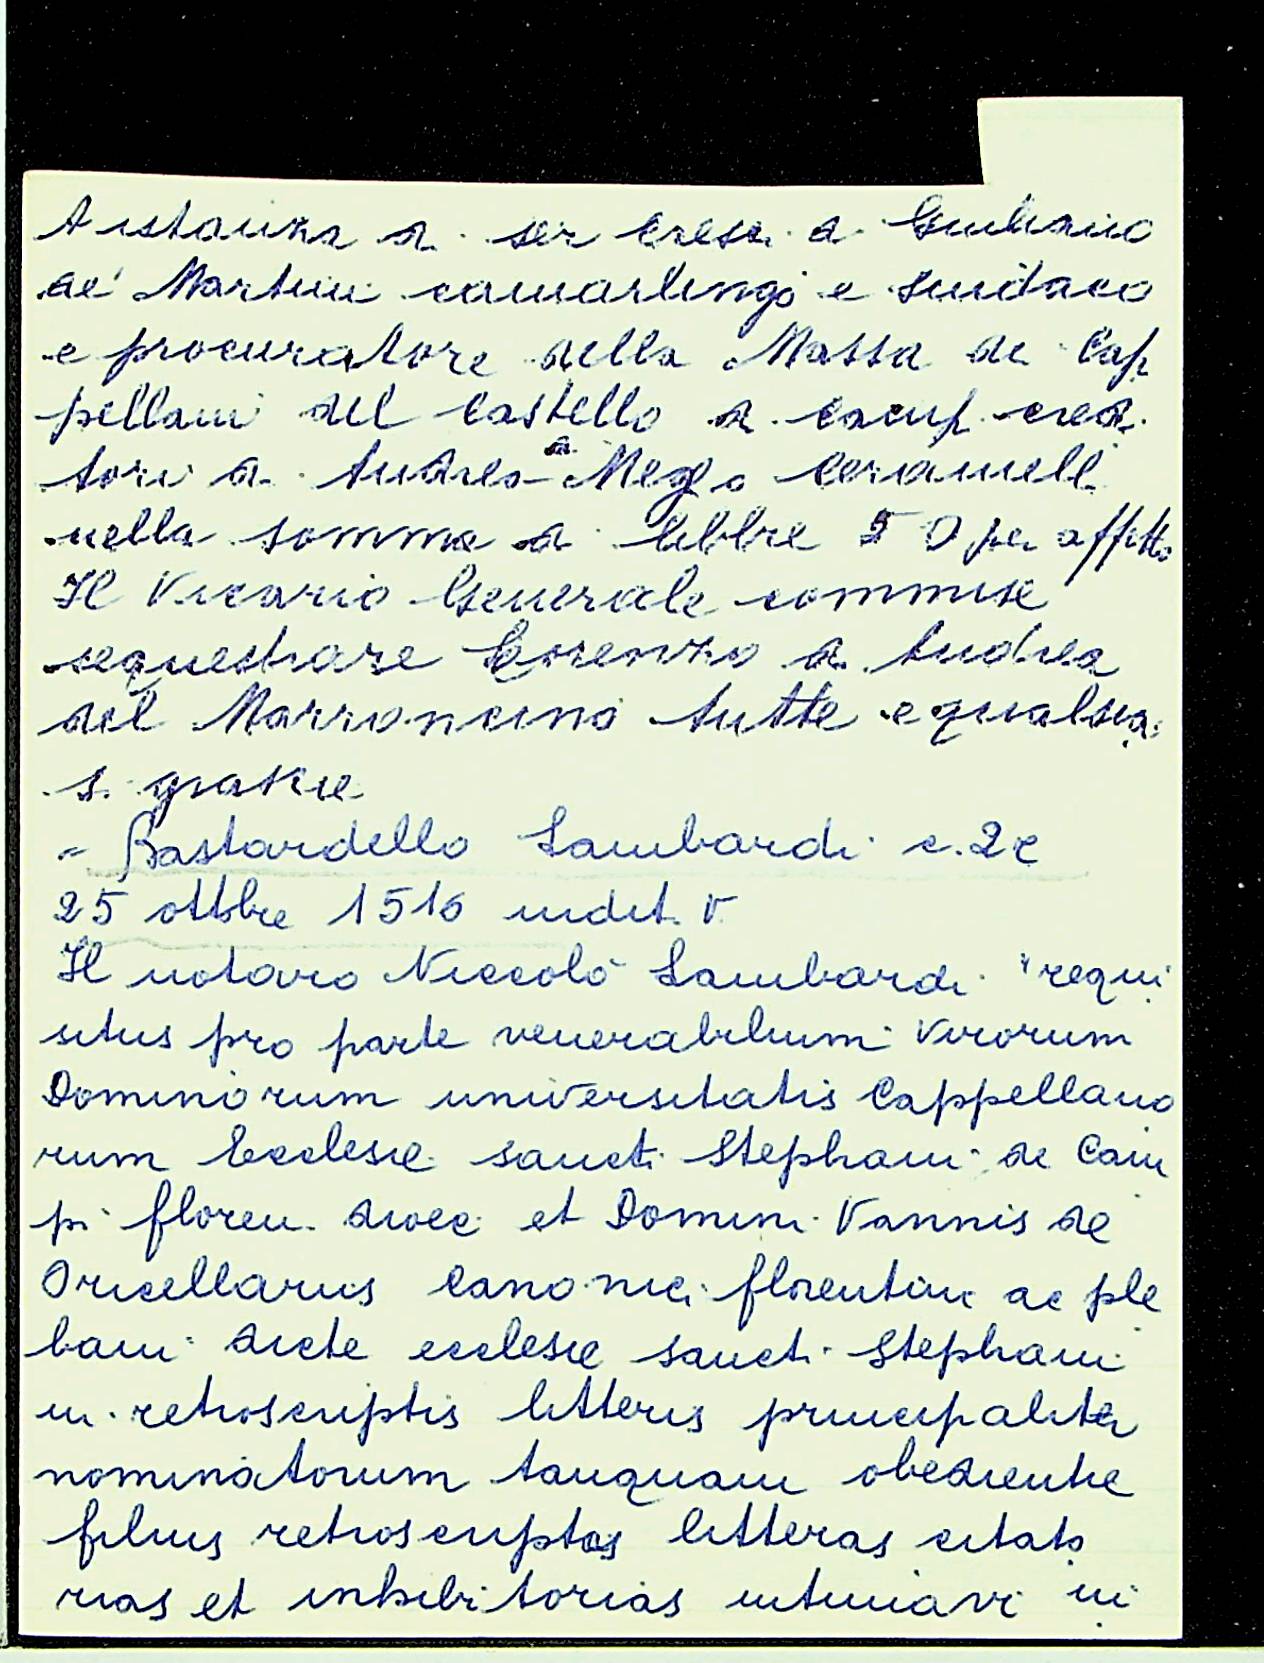 A istanza di ser Cresci di Giuliano
de' Martini camarlingo e sindaco
e procuratore della Massa de Cap
pellani del Castello di Campi credi
tori di Andrea di Meglo Ceramelli
nella somma di libbre 50 per affitto
Il Vicario Generale commise
sequestrare Lorenzo di Andrea
del Marroncino tutte e qualsia
si grazie
- Bastardello Lambardi c. 2
25 ottobre 1516 indit. V
Il notaro Niccolò Lambardi "requi
situs pro parte venerabilium Virorum
Dominorum universitatis Cappellano
rum Ecclesie sancti Stephani de Cam
pi floren. dioec et Domini Vannis de
Oricellariis Canonici florentini ac ple
bani dicte ecclesie sancti Stephani
in retroscriptis litteris principaliter
nominatorum tanquam obedientie
filius retroscriptas litteras citato
rias et inhibitorias intimavi in